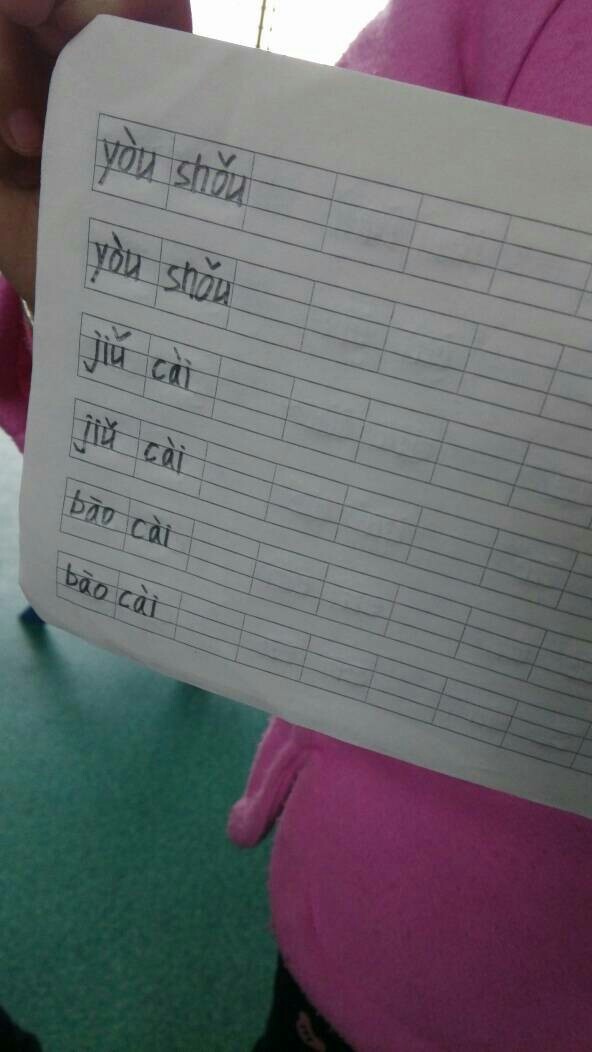 yòu shǒu
yòu shǒu
jiǔ cài
jiǔ cài
bāo cài
bāo cài